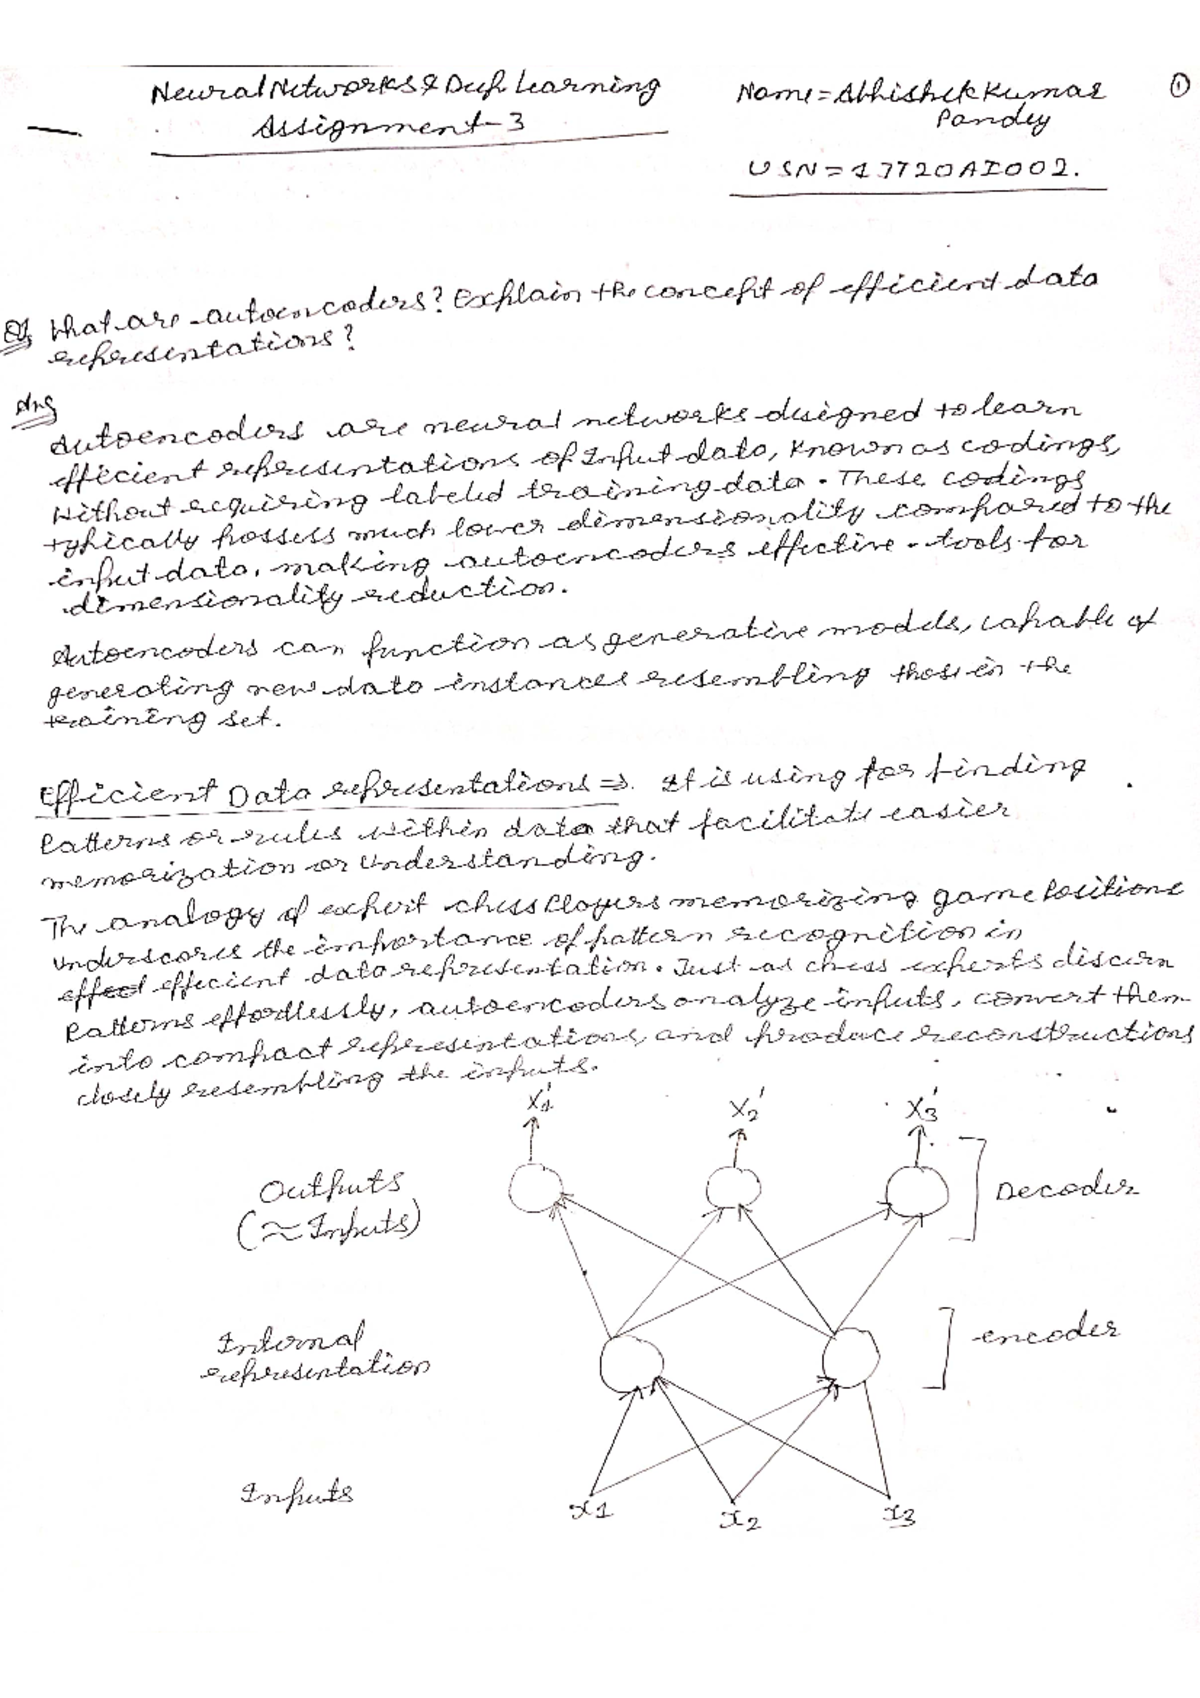 Neural Networks & Deep Learning
Assignment-3
Name = Abhishek Kumar
Pandey
①
USN = 1JT20AI002.
Q1, What are autoencoders? Explain the concept of efficient data
representations?
Ans
Autoencoders are neural networks designed to learn
efficient representations of Input data, known as codings,
without requiring labeled training data. These codings
typically possess much lower dimensionality compared to the
input data, making autoencoders effective tools for
dimensionality reduction.
Autoencoders can function as generative models, capable of
generating new data instances resembling those in the
training set.
Efficient Data representations ⇒ It is using for finding
Patterns or rules within data that facilitate easier
memorization or understanding.
The analogy of expert chess Players memorizing game Positions
underscores the importance of pattern recognition in
efficient data representation. Just as chess experts discern
Patterns effortlessly, autoencoders analyze inputs, convert them
into compact representations, and produce reconstructions
closely resembling the inputs.
X1' X2' X3'
Outputs
(≈ Inputs)
Decoder
Internal
representation
encoder
Inputs
x1 x2 x3